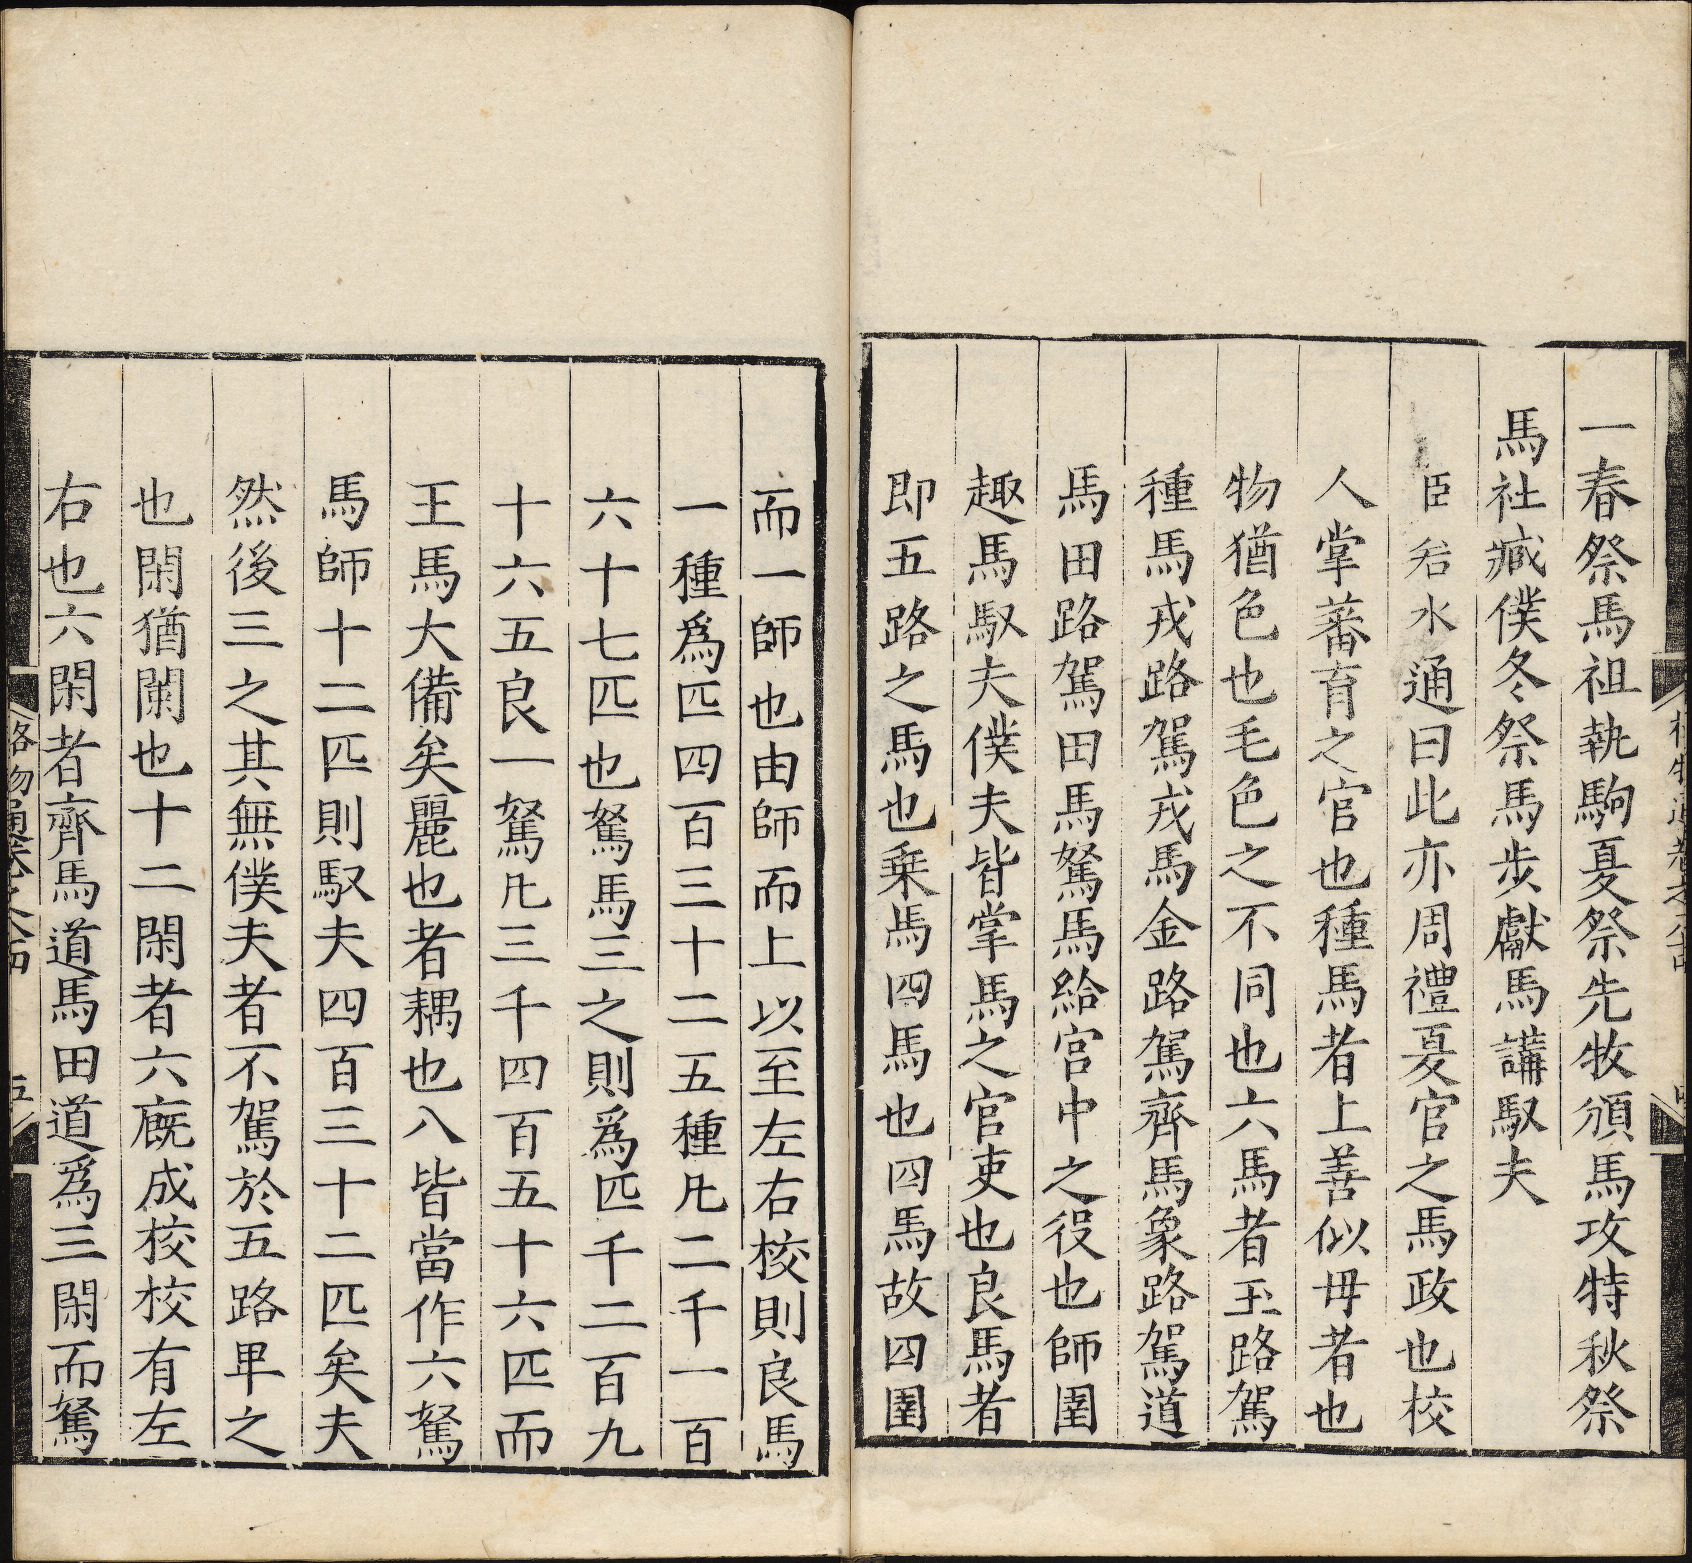 一春祭馬祖執駒夏祭先牧頒馬攻特秋祭
馬社臧僕冬祭馬步獻馬講馭夫
臣若水通曰此亦周禮夏官之馬政也校
人掌蕃育之官也種馬者上善似母者也
物猶色也毛色之不同也六馬者玉路駕
種馬戎路駕戎馬金路駕齊馬象路駕道
馬田路駕田馬駑馬給宮中之役也師圉
趣馬馭夫僕夫皆掌馬之官吏也良馬者
即五路之馬也乗馬四馬也四馬故四圉
而一師也由師而上以至左右校則良馬
一種爲匹四百三十二五種凡二千一百
六十七匹也駑馬三之則爲匹千二百九
十六五良一駑凡三千四百五十六匹而
王馬大備矣麗也者耦也八皆當作六駑
馬師十二匹則馭夫四百三十二匹矣夫
然後三之其無僕夫者不駕於五路卑之
也閑猶闌也十二閑者六廐成校校有左
右也六閑者齊馬道馬田道爲三閑而駑
格物通卷之八十四
五